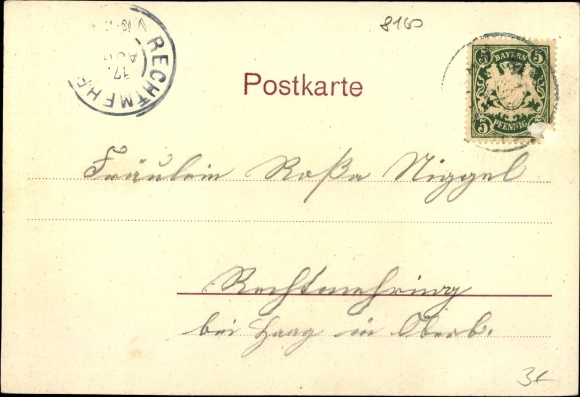 8160
RECHTMEHR
17.
AUG
BAYERN
5 5
5 5
PFENNIG
Postkarte
Fräulein Rosa Niggel
Rechtmehring
bei Haag in Oberb.
3.-